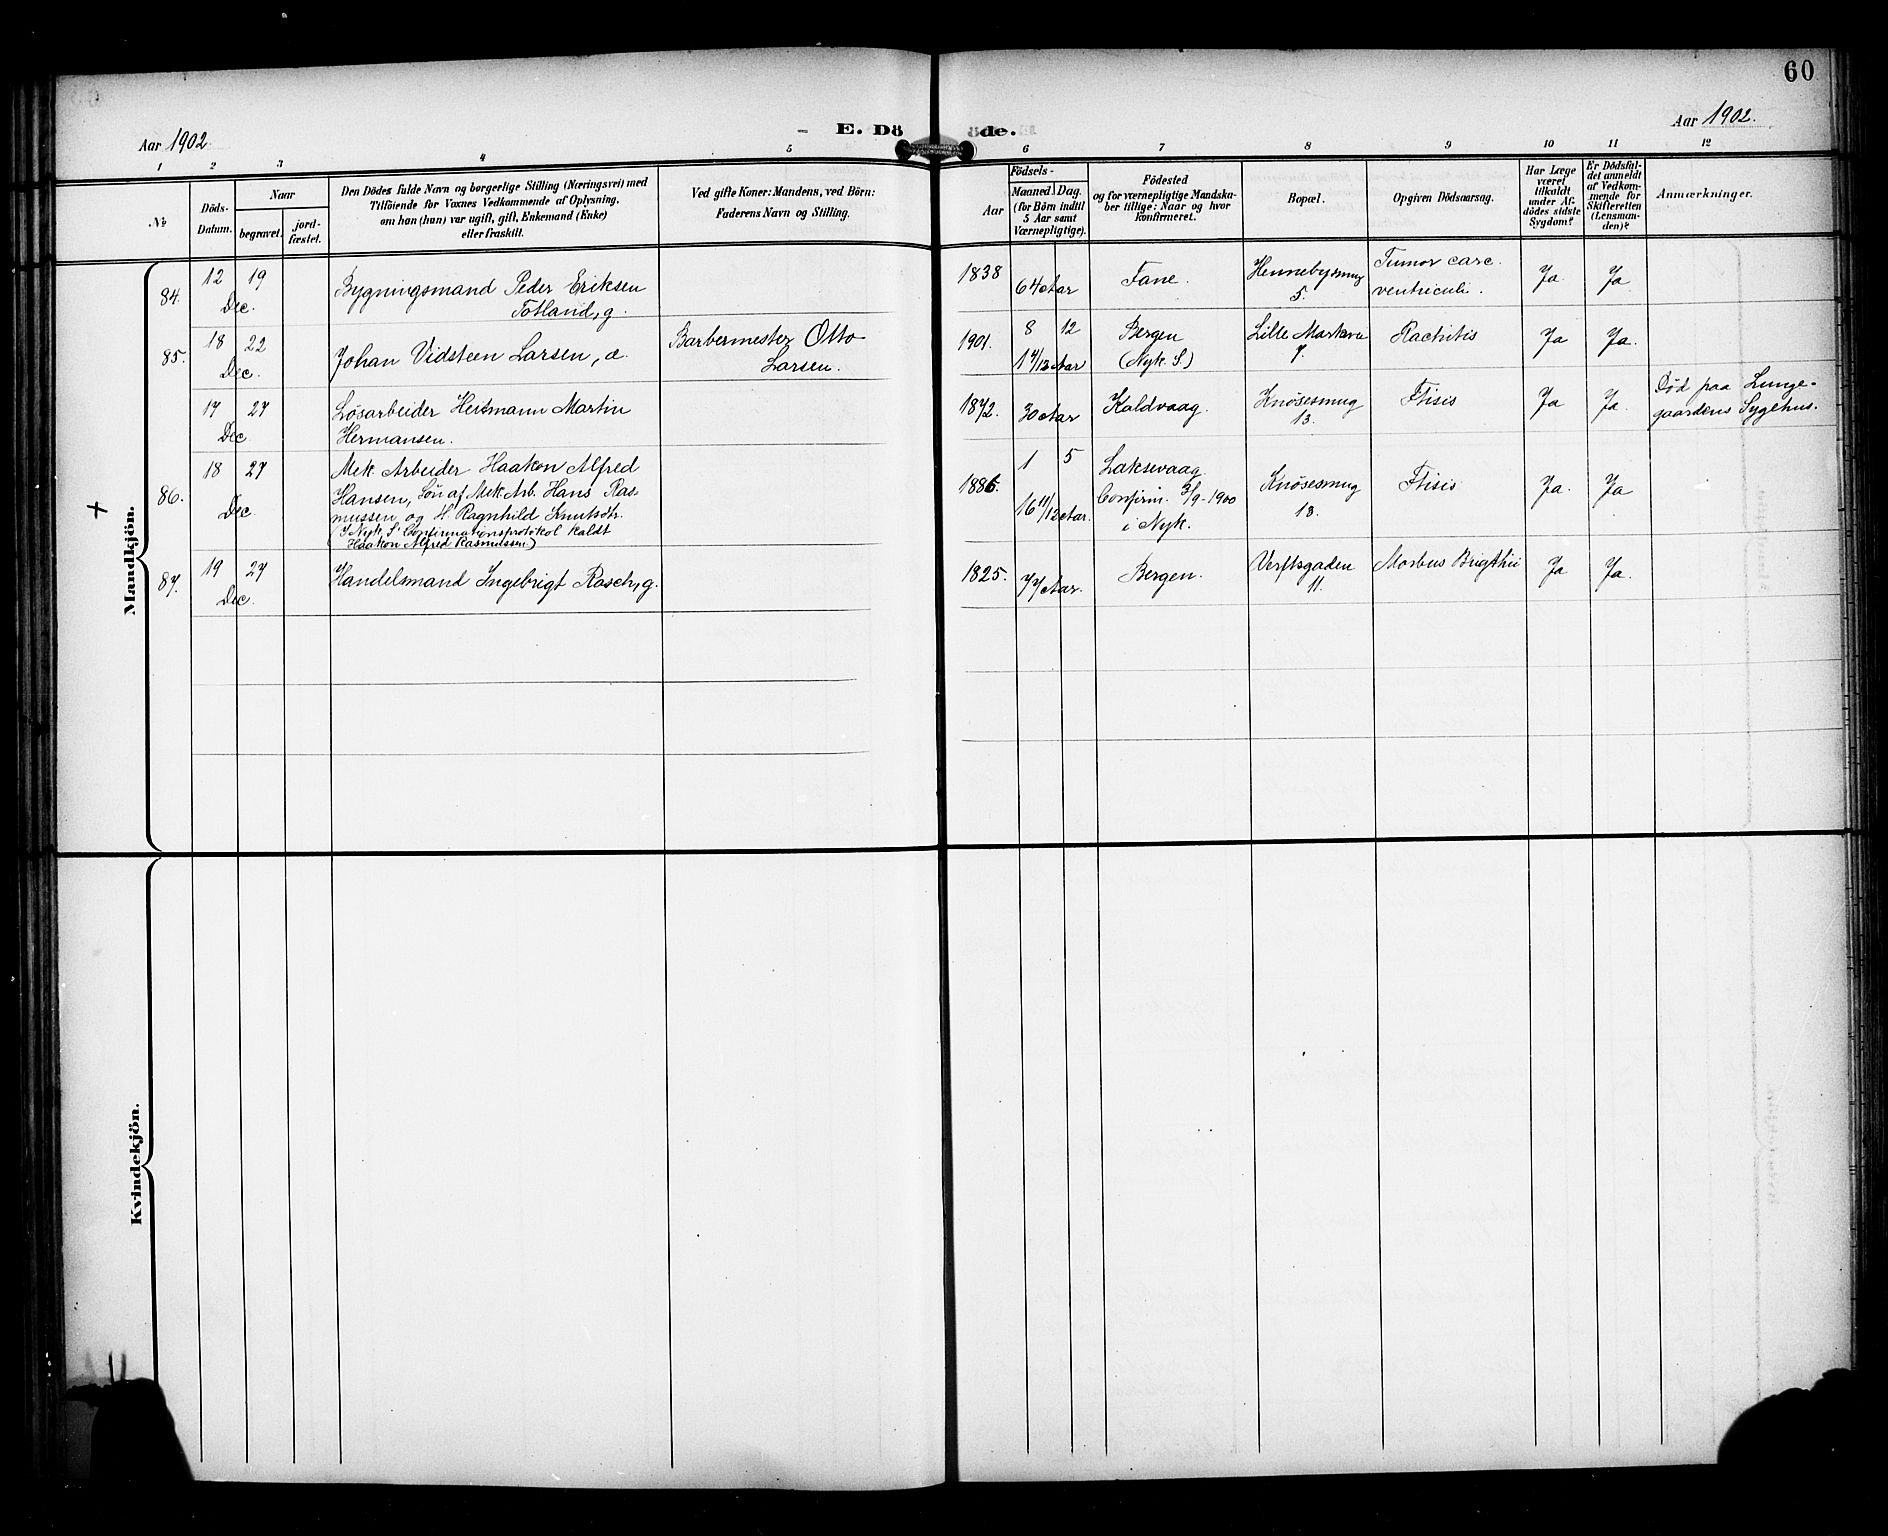 60
Aar 1902
E. Döde.
Aar 1902.
1 2 3 4 5 6 7 8 9 10 11 12
№
Döds-Datum.
Naar
begravet.
jord-fæstet.
Den Dödes fulde Navn og borgerlige Stilling (Næringsvei) med
Tilföiende for Voxnes Vedkommende af Oplysning,
om han (hun) var ugift, gift, Enkemand (Enke)
eller fraskilt.
Ved gifte Koner: Mandens, ved Börn:
Faderens Navn og Stilling.
Födsels-
Aar
Maaned
Dag.
(for Börn indtil
5 Aar samt
Værnepligtige).
Födested
og for værnepligtige Mandska-
ber tillige: Naar og hvor
konfirmeret.
Bopæl.
Opgiven Dödsaarsag.
Har Læge
været
tilkaldt
under Af-
dödes sidste
Sygdom?
Er Dödsfal-
det anmeldt
af Vedkom-
mende for
Skifteretten
(Lensman-
den)?
Anmærkninger.
Mandkjön.
84. 12 Dec. 19 Bygningsmand Peder Eriksen
Totland, g. 1838 64 Aar Fane. Hennebysmug
5. Tumor carc.
ventriculi. Ja Ja
85. 18 Dec. 22 Johan Vidsteen Larsen, a. Barbermester Otto
Larsen. 1901. 8 12
1 4/12 Aar Bergen
(Nyk. S.) Lille Markevei
7. Rachitis Ja Ja.
17 Dec 27 Lösarbeider Heitmann Martin
Hermansen. 1872. 30 Aar Kaldvaag. Knösesmug
13. Ftisis Ja Ja. Död paa Lunge-
gaardens Sygehus.
+
86. 18 Dec 27 Mek. Arbeider Haakon Alfred
Hansen, Sön af Mek. Arb. Hans Ras-
mussen og H. Ragnhild Knutsdtr.
(I Nyk. S. Confirmationsprotokol kaldt
Haakon Alfred Rasmussen) 1886. 1 5
16 11/12 Aar. Laksevaag
Confirm. /9-1900
i Nyk. Knösesmug
13. Ftisis Ja. Ja
87. 19 Dec. 27 Handelsmand Ingebrigt Rasch, g. 1825. 77 Aar. Bergen. Verftsgaden
11. Morbus Brigthii Ja Ja.
Kvindekjön.